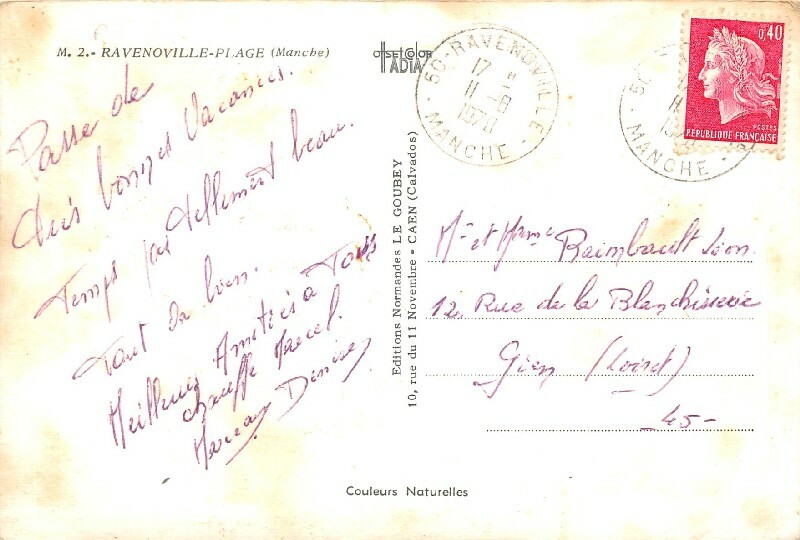 M. 2.- RAVENOVILLE-PLAGE (Manche)
OFFSETCOLOR
IADIA
50-RAVENOVILLE
17 H
11-8
1970
MANCHE
0,40
POSTES
RÉPUBLIQUE FRANÇAISE
50
MANCHE
Passe de
très bonnes Vacances.
Temps pas tellement beau.
Tout va bien.
Meilleures Amitiés à Tous
Marcel.
Denise
Editions Normandes LE GOUBEY
10, rue du 11 Novembre - CAEN (Calvados)
Mr et Mme Raimbault Léon.
12, Rue de la Blanchisserie
Gien (Loiret)
45-
Couleurs Naturelles